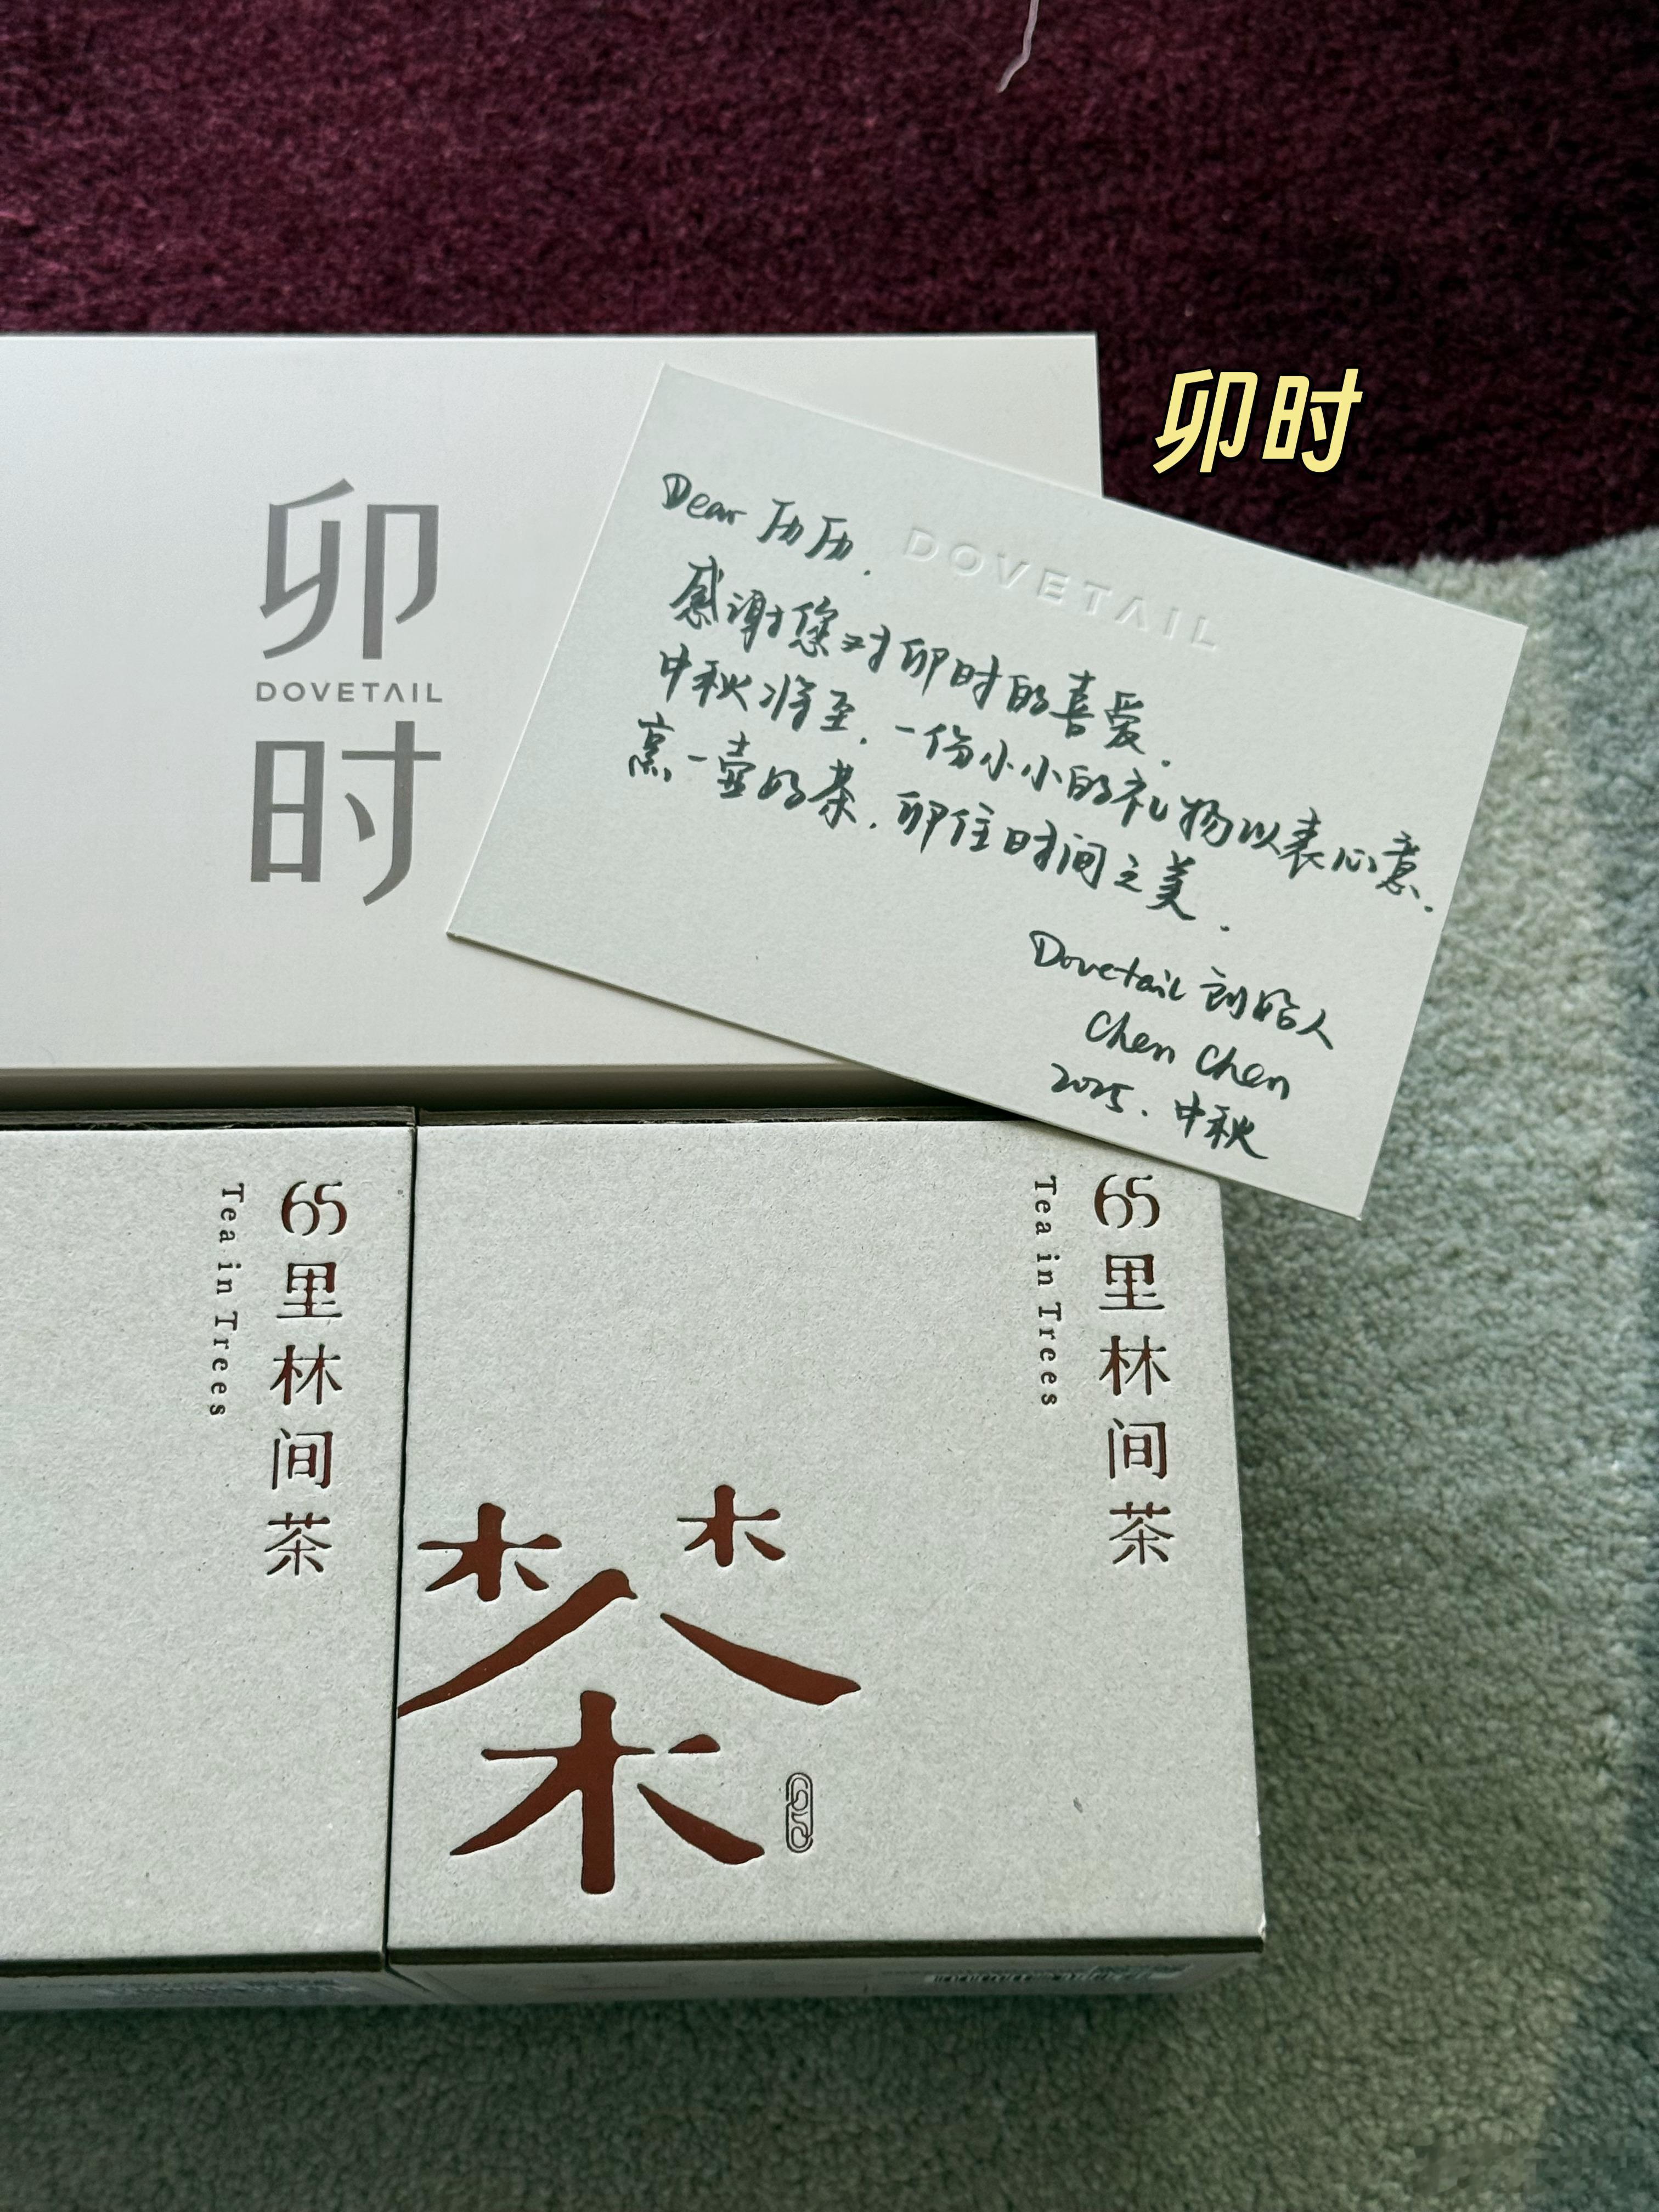 卯时
卯
DOVETAIL
时
DOVETAIL
Dear 历历.
感谢您对卯时的喜爱.
中秋将至.一份小小的礼物以表心意.
烹一壶好茶.卯住时间之美.
Dovetail 创始人
Chen Chen
2025.中秋
65里林间茶
Tea in Trees
65里林间茶
Tea in Trees